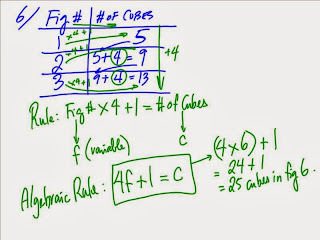 6/ Fig # | # OF CUBES
1 ×4+1 5
2 ×4+1 5+4=9 +4
3 ×4+1 9+4=13
Rule: Fig # × 4 + 1 = # of Cubes
f (variable) C
Algebraic Rule: 4f+1=C
(4×6)+1
= 24+1
= 25 cubes in fig 6.